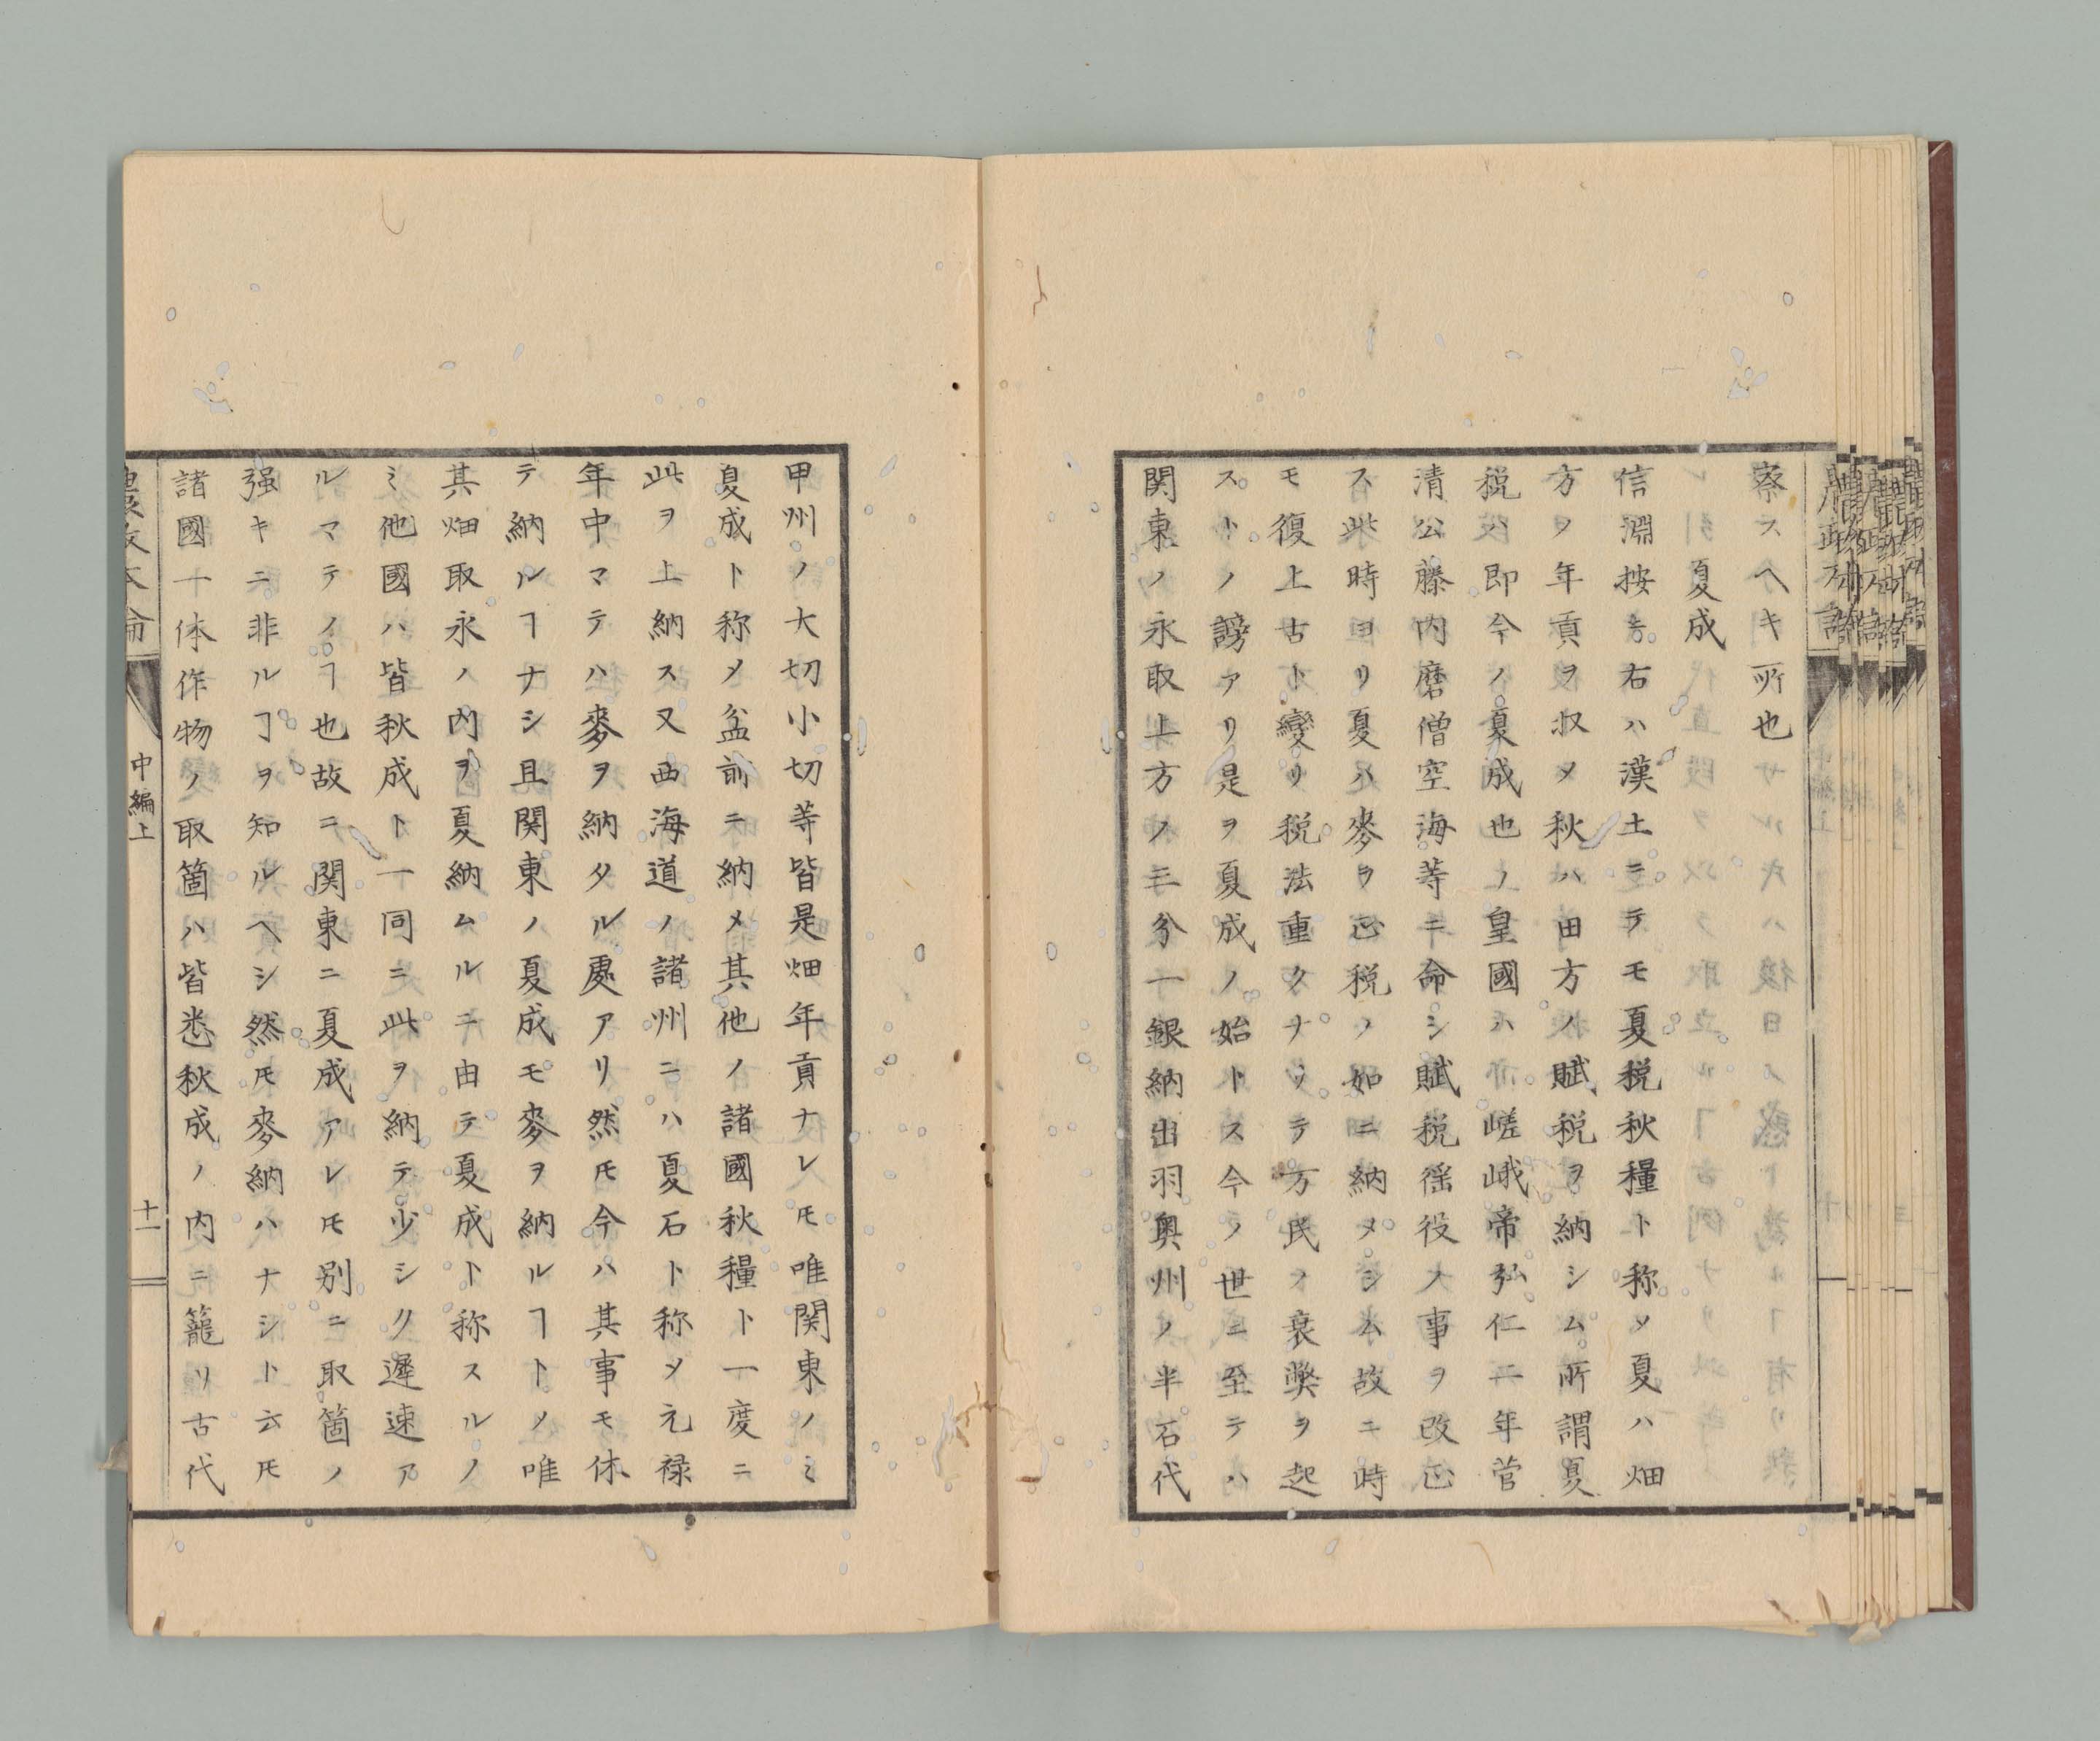 察スヘキ所也
夏成
信淵按ニ右ハ漢土ニテモ夏税秋糧ト称メ夏ハ畑
方ヲ年貢ヲ収メ秋ハ田方ノ賦税ヲ納シム所謂夏
税ハ即今ノ夏成也ノ皇國ハ嵯峨帝弘仁二年菅
清公藤内磨僧空海等ニ命シ賦税徭役ノ事ヲ改正
ス此時ヨリ夏ハ麥ヲ正税ノ如ニ納メシム故ニ時
モ復上古ト變リ税法重クナリテ万民ノ衰弊ヲ起
ストノ謗アリ是ヲ夏成ノ始トス今ノ世ニ至テハ
関東ノ永取上方ノ三分一銀納出羽奥州ノ半石代
甲州ノ大切小切等皆是畑年貢ナレ𪜈唯関東ノミ
夏成ト称メ盆前ニ納メ其他ノ諸國秋糧ト一度ニ
此ヲ上納ス又西海道ノ諸州ニハ夏石ト称メ元禄
年中マテハ麥ヲ納タル處アリ然𪜈今ハ其事モ休
テ納ルヿナシ且関東ノ夏成モ麥ヲ納ルヿトメ唯
其畑取永ノ内ヲ夏納ムルニ由テ夏成ト称スルノ
ミ他國ハ皆秋成ト一同ニ此ヲ納テ少シク遲速ア
ルマテノヿ也故ニ関東ニ夏成アレ𪜈別ニ取箇ノ
强キニ非ルヿヲ知ルヘシ然𪜈麥納ハナシト云𪜈
諸國一体作物ノ取箇ハ皆悉秋成ノ内ニ籠リ古代
中編上
十一